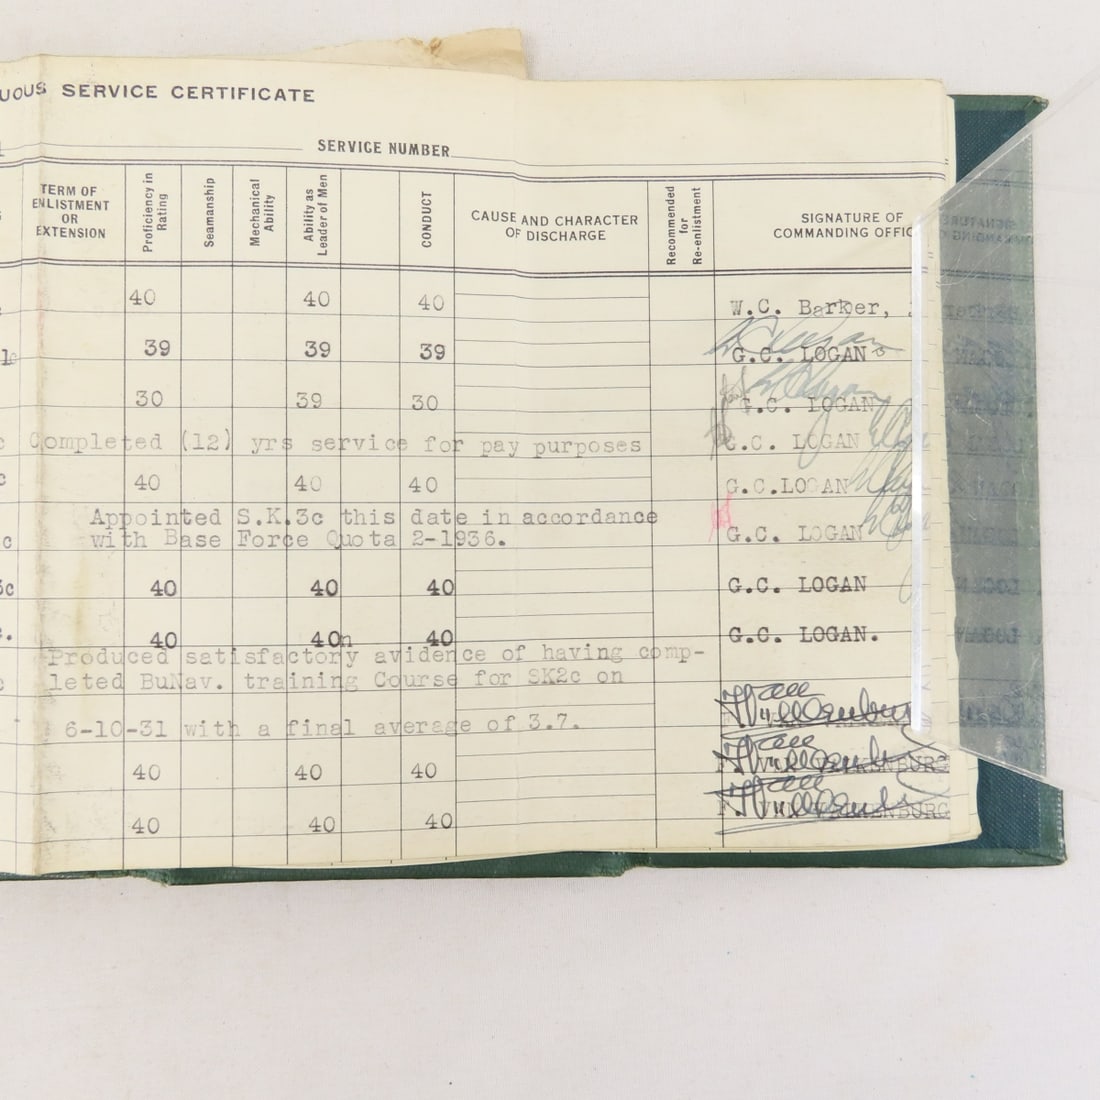 UOUS SERVICE CERTIFICATE
SERVICE NUMBER
TERM OF ENLISTMENT OR EXTENSION
Proficiency in Rating
Seamanship
Mechanical Ability
Ability as Leader of Men
CONDUCT
CAUSE AND CHARACTER OF DISCHARGE
Recommended for Re-enlistment
SIGNATURE OF COMMANDING OFFIC
40 40 40 W.C. Barker,
39 39 39 G.C. LOGAN
30 39 30 G.C. LOGAN
Completed (12) yrs service for pay purposes G.C. LOGAN
40 40 40 G.C.LOGAN
Appointed S.K.3c this date in accordance
with Base Force Quota 2-1936. G.C. LOGAN
3c 40 40 40 G.C. LOGAN
40 40n 40 G.C. LOGAN.
Produced satisfactory avidence of having comp-
leted BuNav. training Course for SK2c on
6-10-31 with a final average of 3.7.
40 40 40
40 40 40